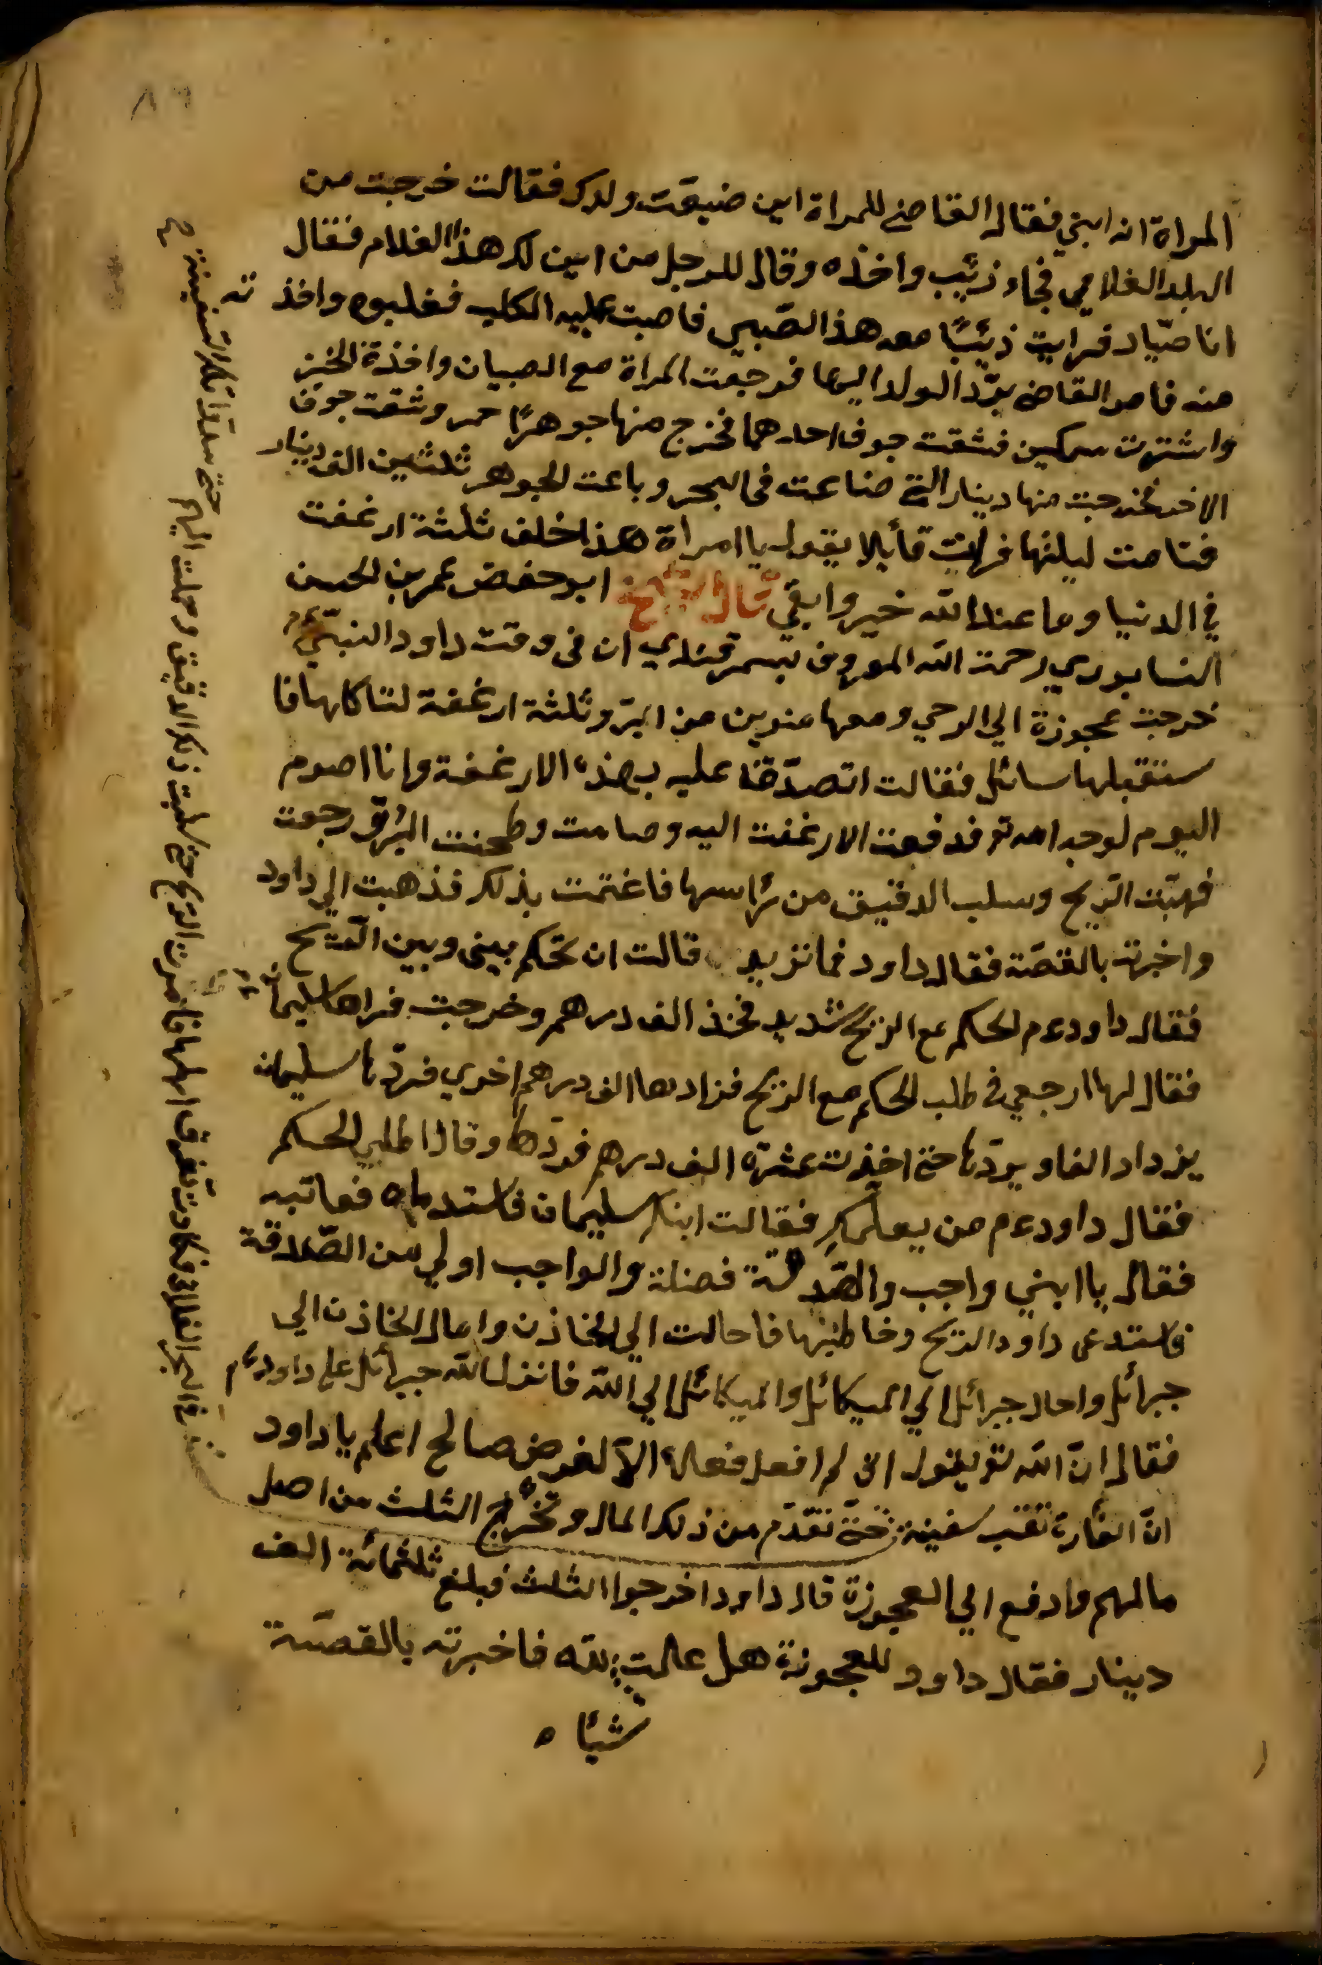 ٨٩
المراة انه ابني فقال القاضي للمراة اين ضيعت ولدك فقالت خرجت من
البلد الغلامي فجاء ذئب واخذه وقال للرجل من اين لك هذا الغلام فقال
انا صياد فرايت ذئبًا معه هذا الصبي فاصبت عليه الكلب فغلبوه واخذته
منه فامر القاضي بردّ الولد اليها فرجعت المراة مع الصبيان واخذة الخبز
واشترت سمكين فشقت جوف احدهما فخرج منها جوهرًا حمر وشقت جوف
الاخر فخرجت منها دينار التي ضاعت في البحر وباعت الجوهر ثلثين الف دينار
فنامت ليلتها فرات قائلا يقول يا امراة هذا خلف ثلثة ارغفت
في الدنيا وما عند الله خير وابقي قال الشيخ ابو حفص عمر بن الحسن
النسابوري رحمت الله المعروف بسمرقندي ان في وقت داود النبيّ ءم
خرجت عجوزة الي الرحي ومعها مندين من البرّ وثلثة ارغفة لتاكلها فا
ستقبلها سائل فقالت اتصدّقنا عليه بهذه الارغفة وانا اصوم
اليوم لوجه الله تع فدفعت الارغفت اليه وصامت وطحنت البرّ ورجعت
فهبّت الرّيح وسلب الدقيق من رأسها فاغتمت بذلك فذهبت الي داود
واخبرته بالقصّة فقال داود فما تزيد قالت ان تحكم بيني وبين الرّيح
فقال داود ءم الحكم مع الريح شديد فخذ الف درهم وخرجت فراها سليمان
فقال لها ارجعي في طلب الحكم مع الريح فزادها الف درهم اخري فردّها سليمان
يزداد الفا ويردّها حتي اخذت عشرة الف درهم فردّها وقال اطلبي الحكم
فقال داود ءم من يعلمك فقالت ابنك سليمان فاستدعاه فعاتبه
فقال يا ابني واجب والصّدقة فضلة والواجب اولي من الصّدقة
فاستدعى داود الريح وخاطبها فاحالت الي الخازن واحال الخازن الي
جبرائل واحال جبرائل الي الميكائل والميكائل الي الله فانزل الله جبرائل على داود ءم
فقال انّ الله تع يقول اني لم افعل فعلا الّا لغرض صالح اعلم يا داود
انّ الفأرة نقب سفينة حتي تقدّم من ذلك المال وتخرج الثلث من اصل
مالهم وادفع الي العجوزة قال داود اخرجوا الثلث فبلغ ثلثمائة الف
دينار فقال داود للعجوزة هل عملت لله فاخبرته بالقصّة
شيئا ٥
في البحر الفلاني فكادت تغرق اهلها فامرت الريح حتي سلبت ذلك الدقيق وحملت اليهم حتي سدّ تلك السفينة